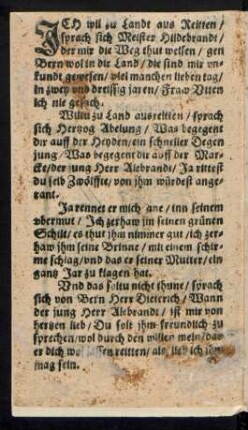 ICH wil zu Landt aus Reitten /
sprach sich Meister Hildebrandt /
der mir die Weg thut weisen / gen
Bern wol in die Land / die sind mir vn-
kundt gewesen / viel manchen lieben tag /
In zwey vnd dreissig jaren / Fraw Vtten
ich nie gesach.
Wiltu zu Land ausreitten / sprach
sich Hertzog Abelung / Was begegent
dir auff der Heyden / ein schneller Degen
jung / Was begegent dir auff der Mar-
cke / der jung Herr Alebrandt / Ja rittest
du selb Zwölffte / von jhm würdest ange-
rant.
Ja rennet er mich ane / inn seinem
vbermut / Ich zerhaw jm seinen grünen
Schilt / es thut jhm nimmer gut / ich zer-
haw jhm seine Brinne / mit einem schir-
me schlag / vnd das er seiner Mutter / ein
gantz Jar zu klagen hat.
Vnd das soltu nicht thune / sprach
sich von Bern Herr Dieterich / Wann
der jung Herr Alebrandt / ist mir von
hertzen lieb / Du solt jhm freundlich zu
sprechen / wol durch den willen mein / das
er dich wol lassen reitten / als lieb ich jhm
mag sein.